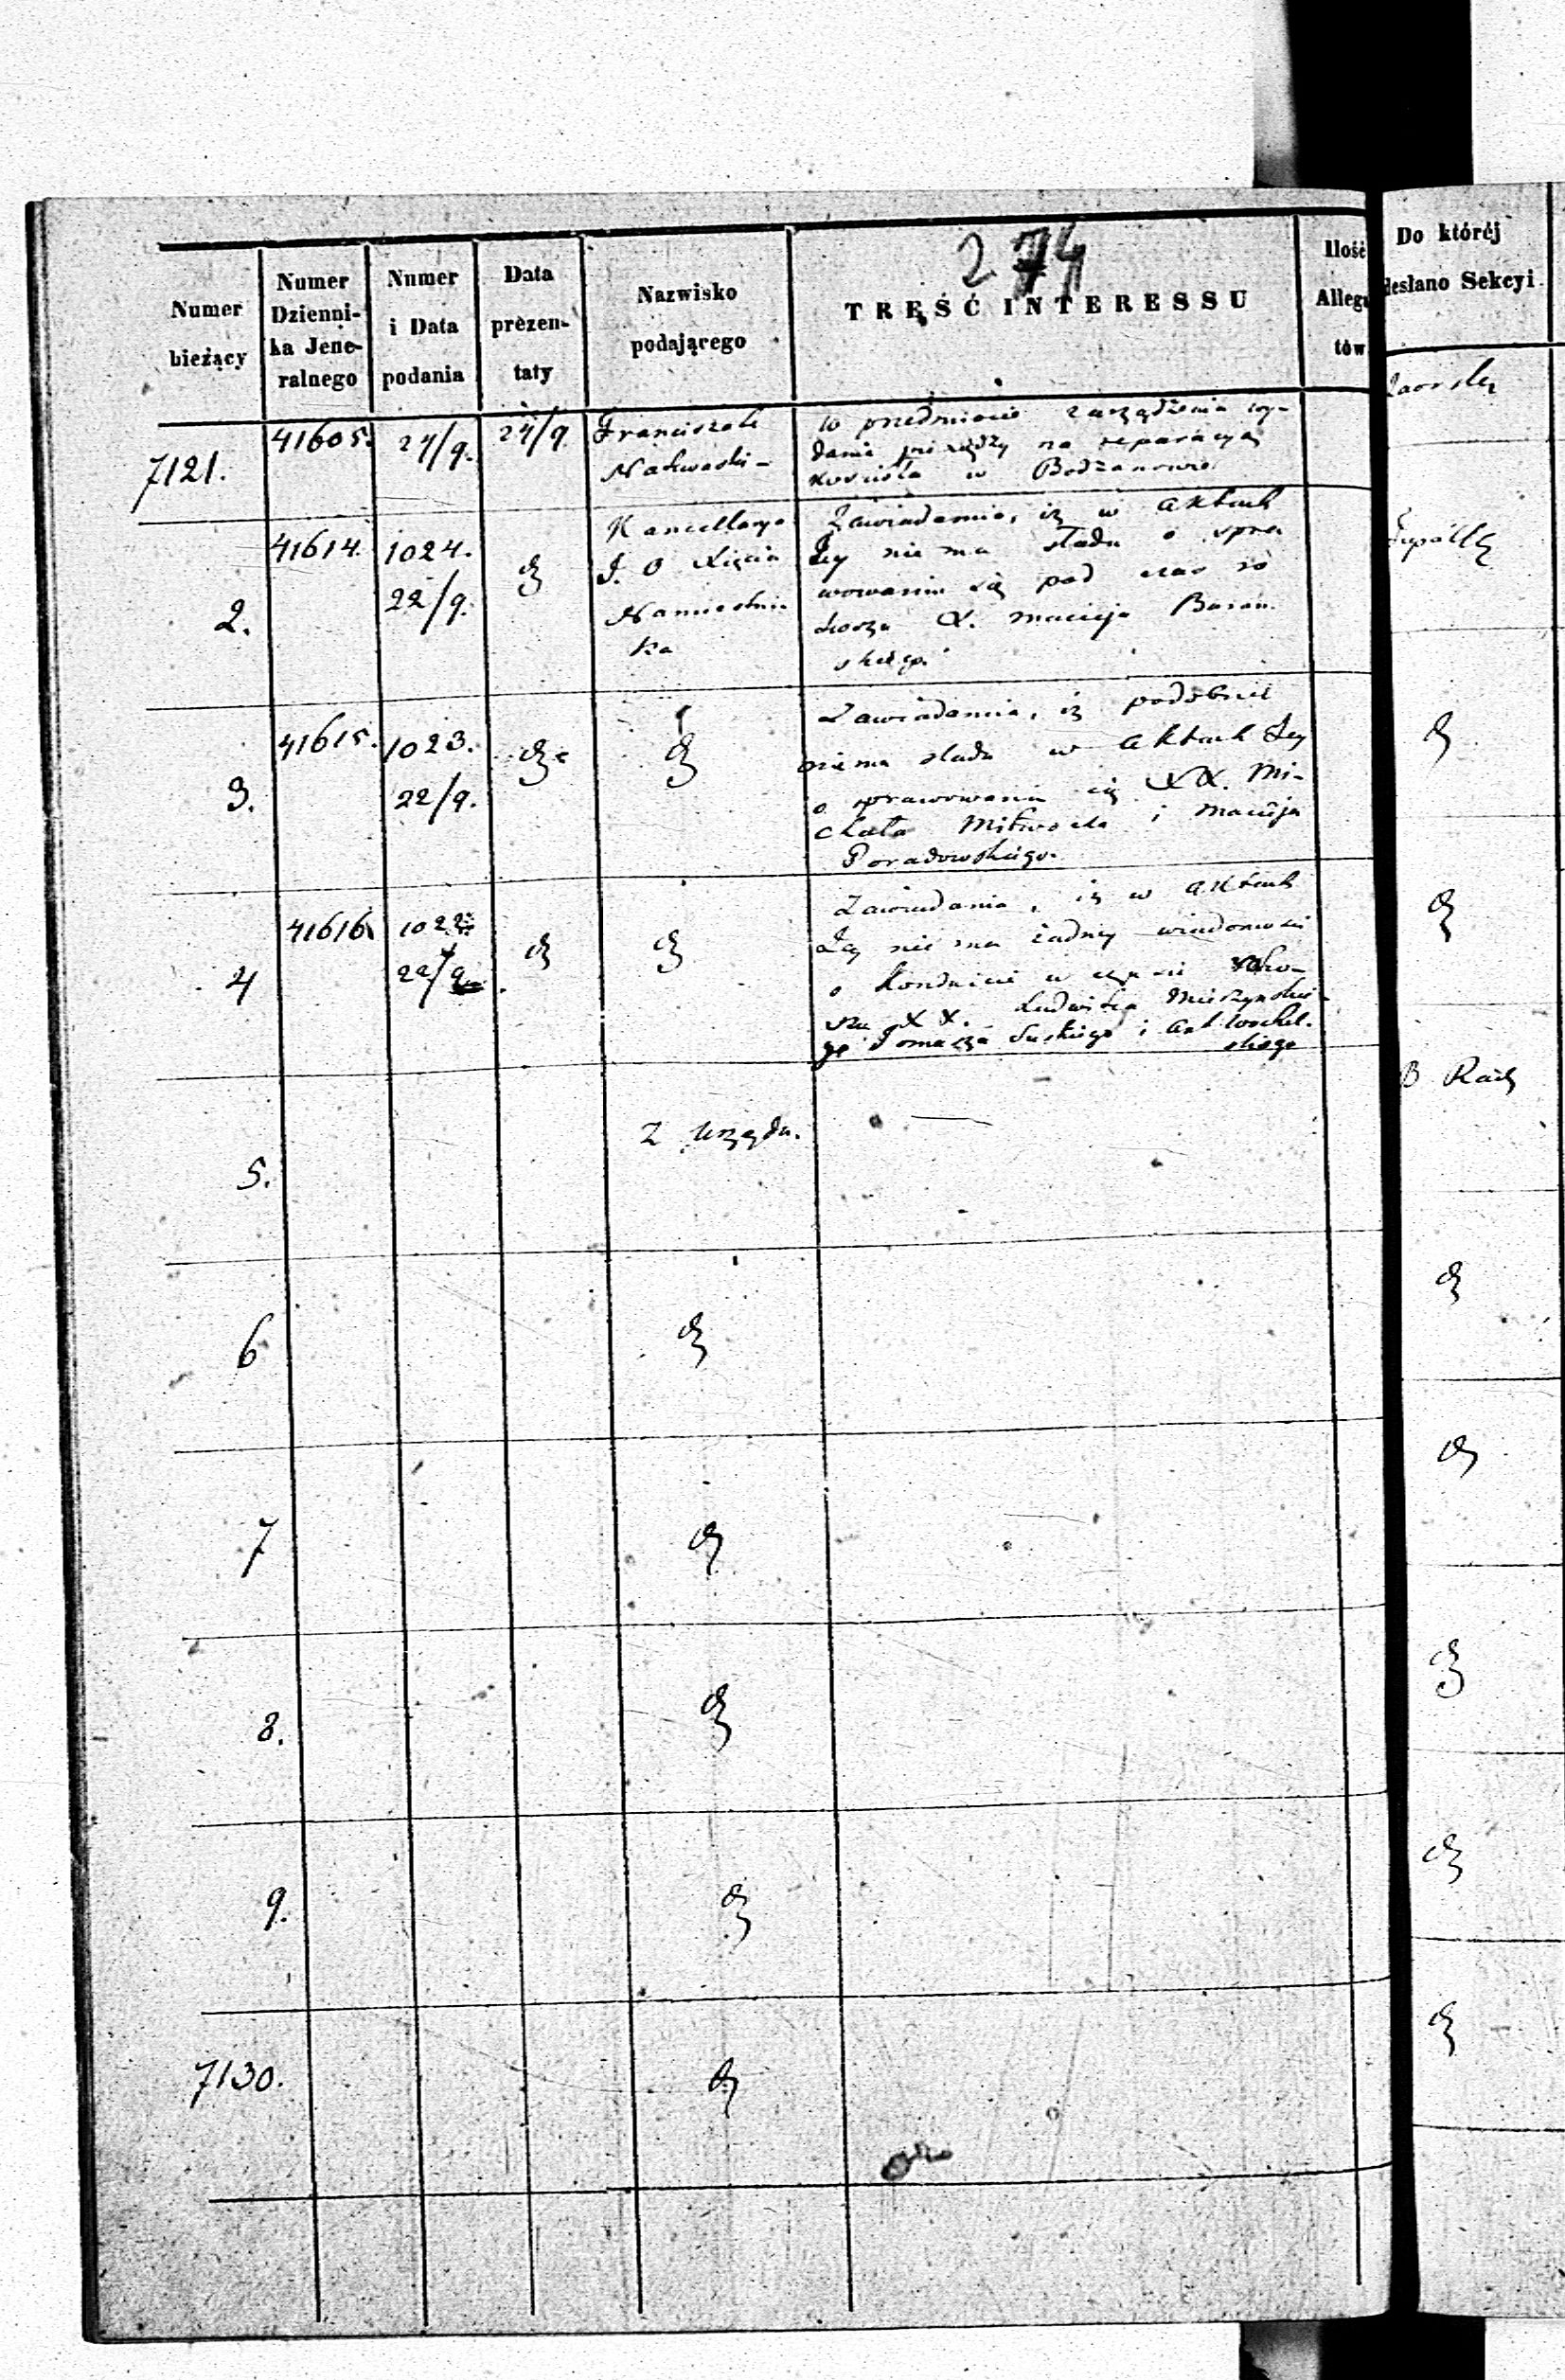 274
Numer bieżący
Numer Dzienni- ka Jene- ralnego
Numer i Data podania
Data prezen- taty
Nazwisko podającego
TRĘŚĆ INTERESSU
Ilość Allega tów
Do któréj desłano Sekcyi
7121. 41605. 27/9. 27/9 Franciszek
Nakwaski
w przedmiocie zarządzenia wy-
dania pieniędzy na reparacyą
kościoła w Bodzanowie
2. 41614. 1024. 22/9. Kancellarya
J. O Xięcia
Namiestni
ka
Zawiadamia, iż w aktach
Jey nie ma śladu o spra
wowaniu się pod czas ro
koszu X. Macieja Baran
skiego.
3. 41615. 1023. 22/9.
Zawiadamia, iż podobnie
niema śladu w aktach Jey
o sprawowaniu się XX. Mi-
chała i Macieja
Poradowskiego.
4 41616 1022 22/9
Zawiadamia, iż w aktach
Jey nie ma żadney wiadomości
o w czasie roko-
szu XX. Ludwika
go Tomasza i
skiego
5. Z Urzędu. B Rach
6
7
8.
9.
7130.